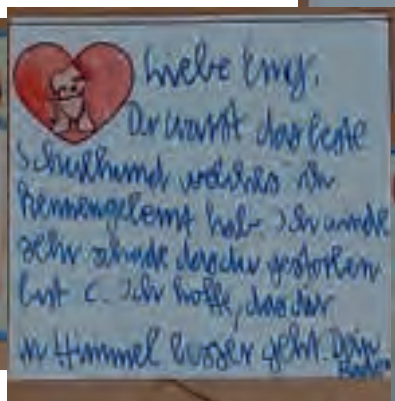 Liebe Emy.
Du warst das beste
Schulhund welches ich
kennengelernt hab. Ich finde
sehr schade das du gestorben
bist :(. Ich hoffe, das dir
in Himmel besser geht. Dein